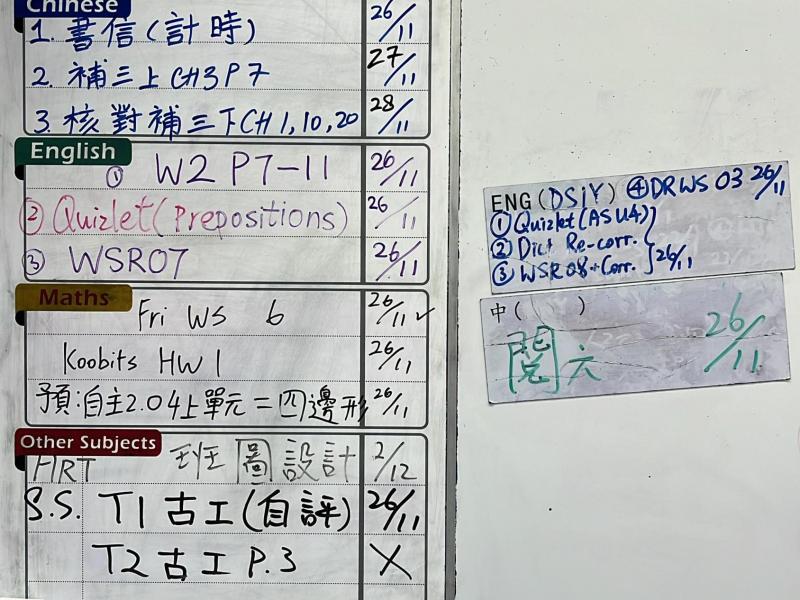 Chinese
1. 書信(計時) 26/11
2. 補三上CH3P7 27/11
3. 核對補三下CH1,10,20 28/11
English
① W2 P7-11 26/11
② Quizlet(Prepositions) 26/11
③ WSR07 26/11
Maths
Fri WS 6 26/11 ✓
Koobits HW1 26/11
預:自主2.04上單元=四邊形 26/11
Other Subjects
圖設計 2/12
S.S. T1古工(自評) 26/11
T2古工P.3 X
ENG (DSjY) ④DRWS 03 26/11
① Quizlet(ASU4)
② Dict Re-corr.
③ WSR08+Corr. 26/11
中( )
閱六 26/11